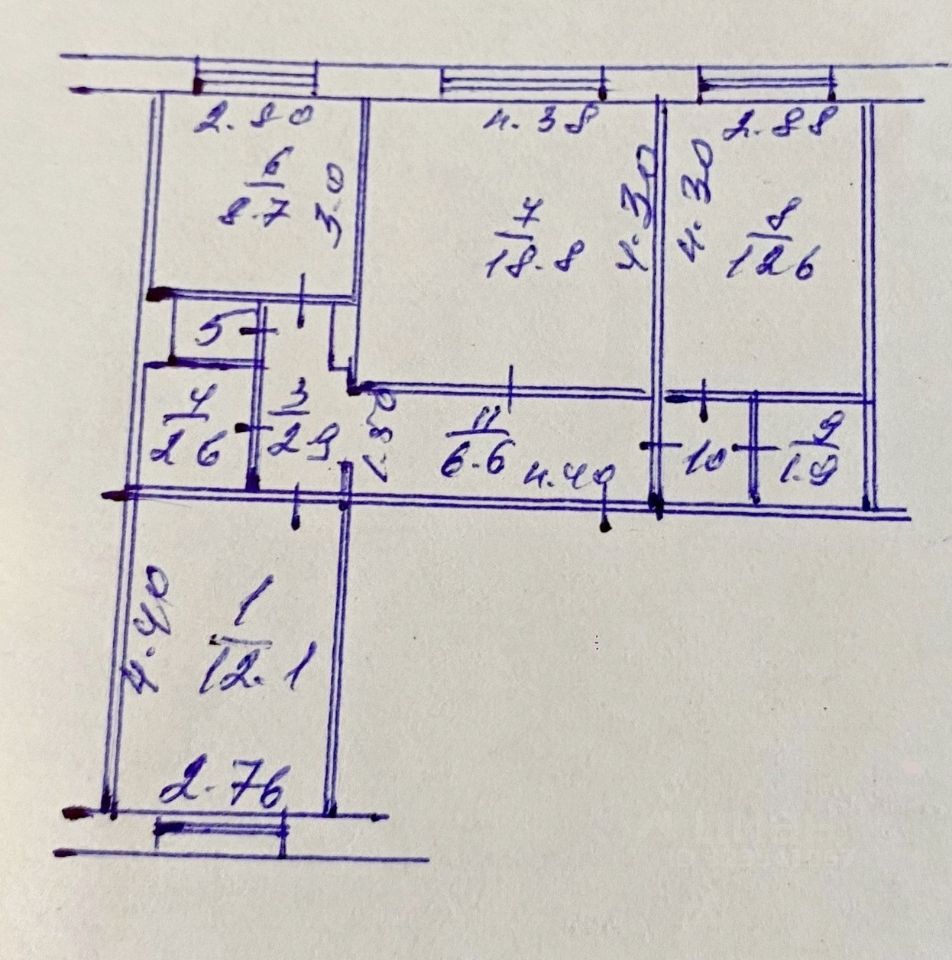 2.80
4.38
2.88
6
8.7
3.0
7
18.8
4.30
4.30
8
12 6
5
4
2 6
3
2 9
1.50
11
6.6
4.40
10
9
1.9
4.40
1
12.1
2.76